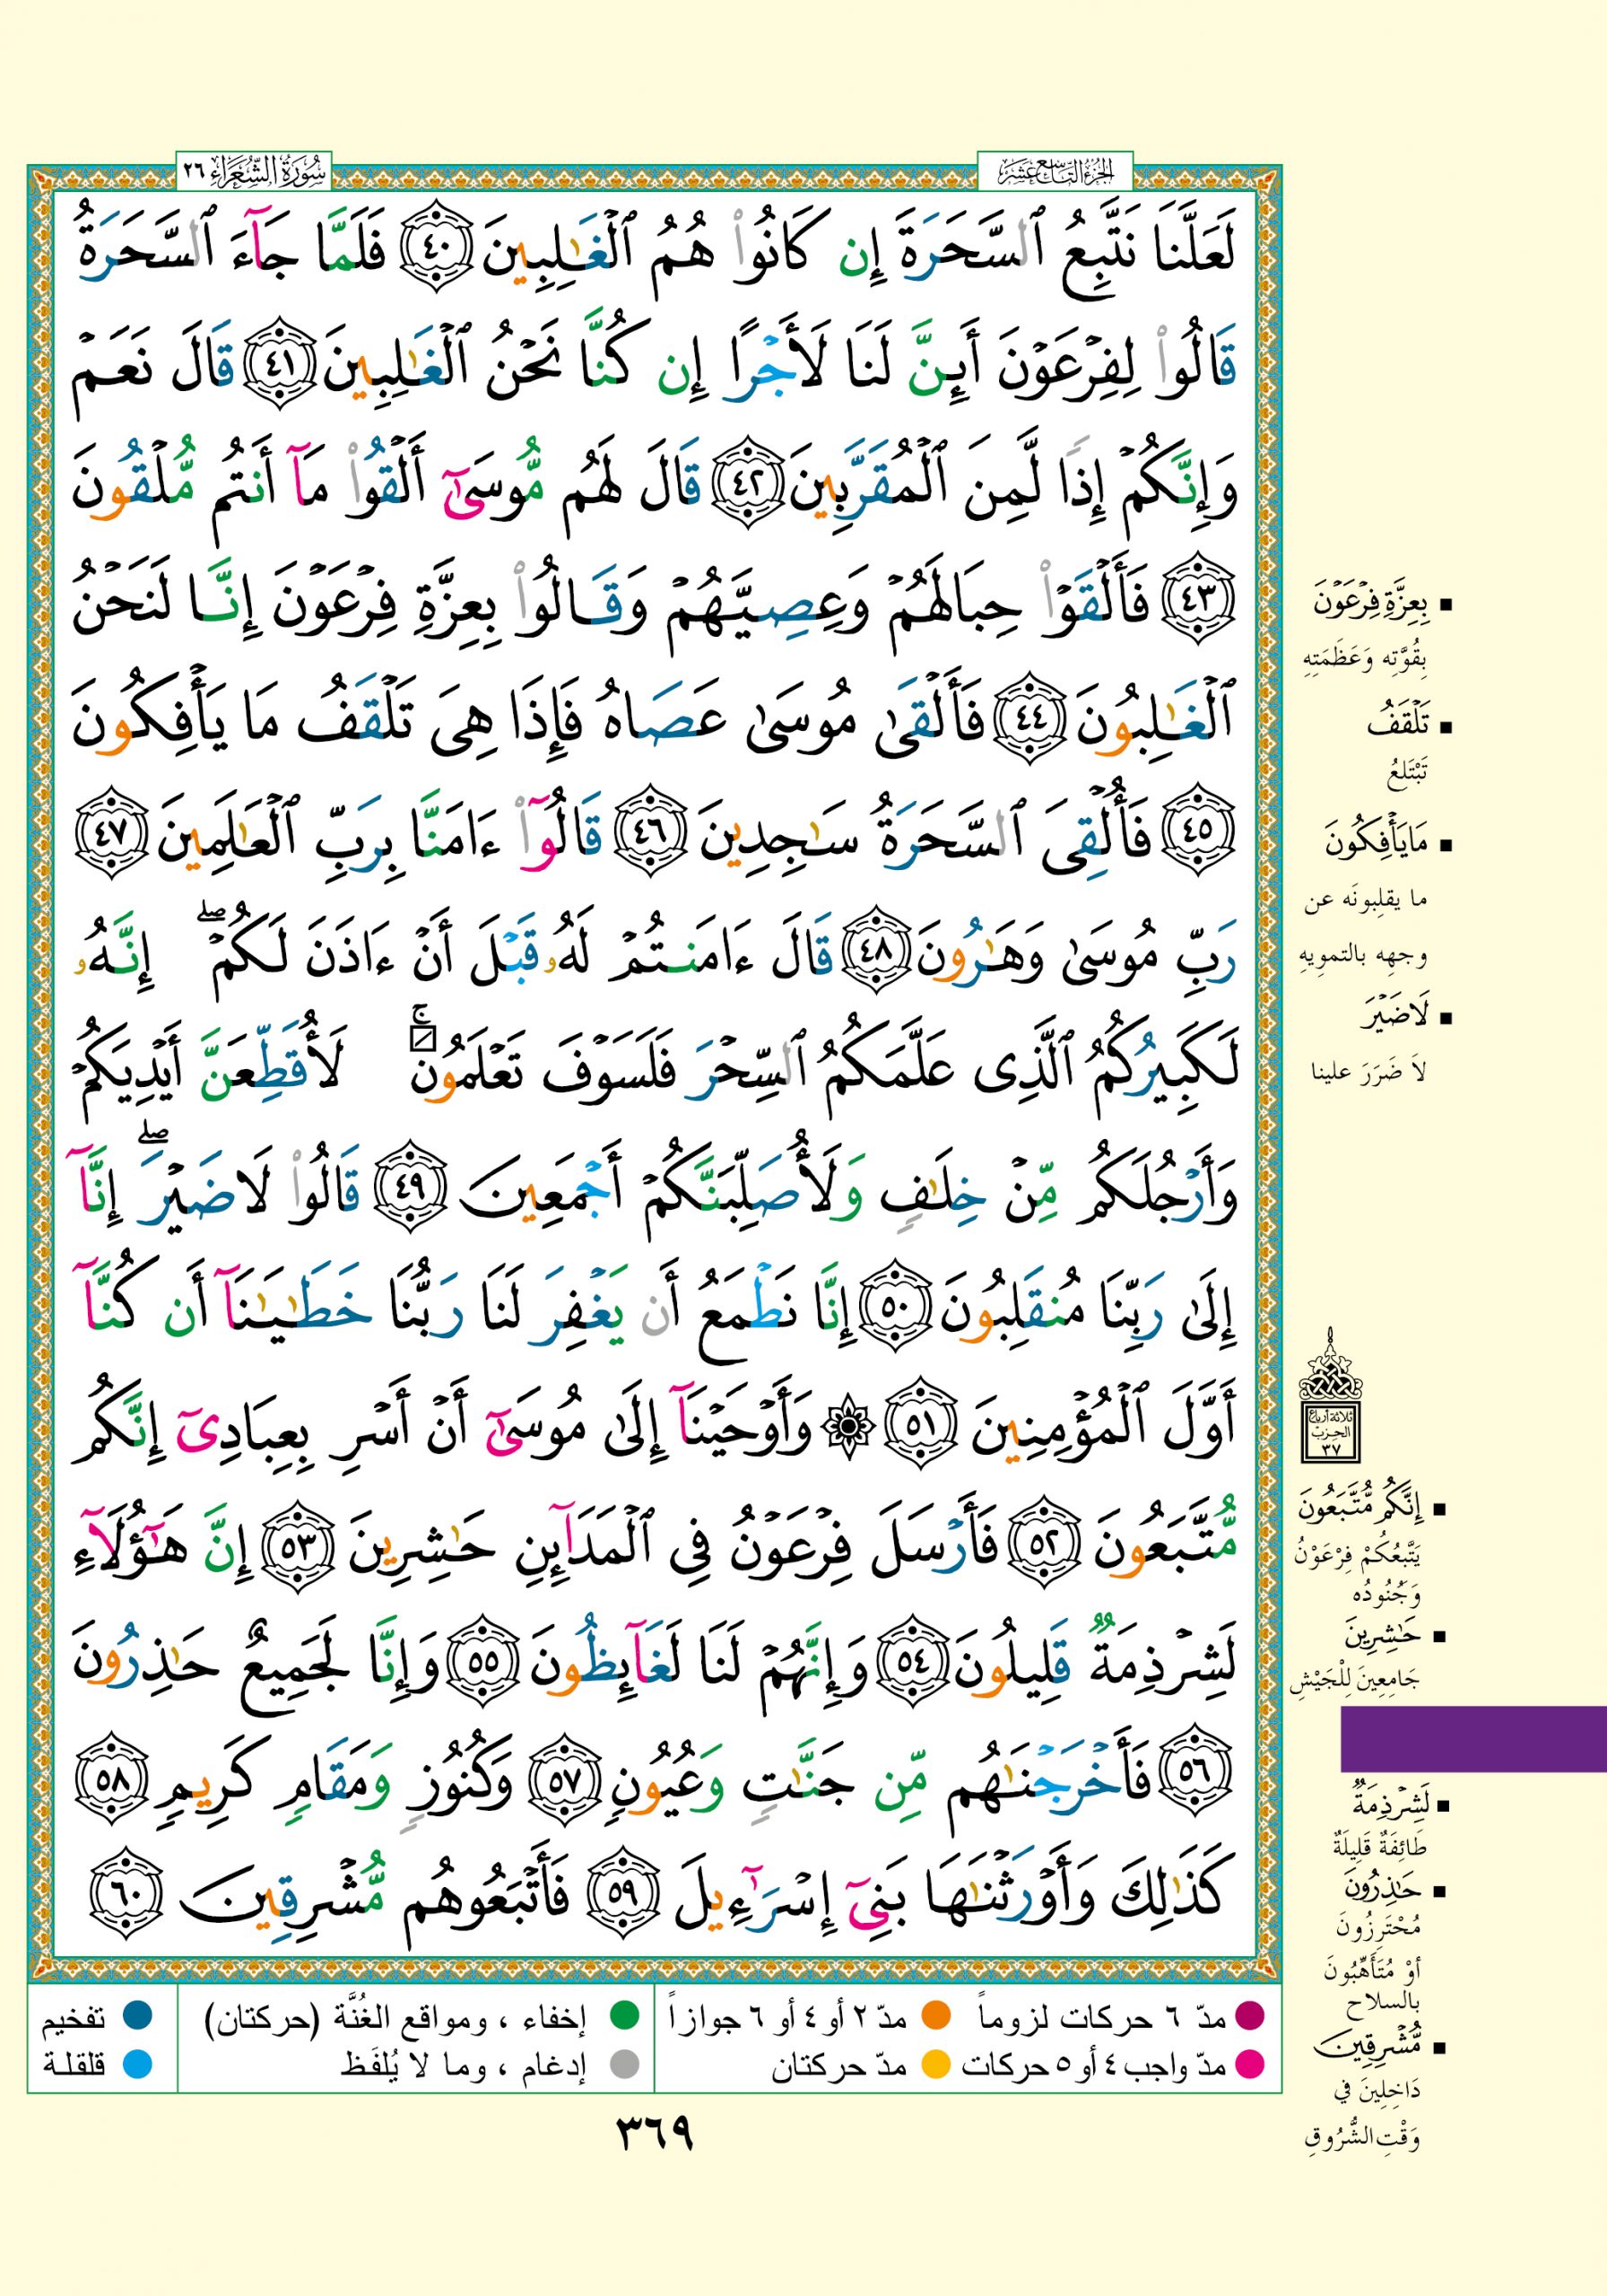 سُورَةُ الشُّعَرَاءِ ٢٦
الجزء التاسع عشر
لَعَلَّنَا نَتَّبِعُ ٱلسَّحَرَةَ إِن كَانُوا۟ هُمُ ٱلْغَـٰلِبِينَ ﴿٤٠﴾ فَلَمَّا جَآءَ ٱلسَّحَرَةُ
قَالُوا۟ لِفِرْعَوْنَ أَئِنَّ لَنَا لَأَجْرًا إِن كُنَّا نَحْنُ ٱلْغَـٰلِبِينَ ﴿٤١﴾ قَالَ نَعَمْ
وَإِنَّكُمْ إِذًا لَّمِنَ ٱلْمُقَرَّبِينَ ﴿٤٢﴾ قَالَ لَهُم مُّوسَىٰٓ أَلْقُوا۟ مَآ أَنتُم مُّلْقُونَ
﴿٤٣﴾ فَأَلْقَوْا۟ حِبَالَهُمْ وَعِصِيَّهُمْ وَقَالُوا۟ بِعِزَّةِ فِرْعَوْنَ إِنَّا لَنَحْنُ
ٱلْغَـٰلِبُونَ ﴿٤٤﴾ فَأَلْقَىٰ مُوسَىٰ عَصَاهُ فَإِذَا هِىَ تَلْقَفُ مَا يَأْفِكُونَ
﴿٤٥﴾ فَأُلْقِىَ ٱلسَّحَرَةُ سَـٰجِدِينَ ﴿٤٦﴾ قَالُوٓا۟ ءَامَنَّا بِرَبِّ ٱلْعَـٰلَمِينَ ﴿٤٧﴾
رَبِّ مُوسَىٰ وَهَـٰرُونَ ﴿٤٨﴾ قَالَ ءَامَنتُمْ لَهُۥ قَبْلَ أَنْ ءَاذَنَ لَكُمْ ۖ إِنَّهُۥ
لَكَبِيرُكُمُ ٱلَّذِى عَلَّمَكُمُ ٱلسِّحْرَ فَلَسَوْفَ تَعْلَمُونَ ۚ لَأُقَطِّعَنَّ أَيْدِيَكُمْ
وَأَرْجُلَكُم مِّنْ خِلَـٰفٍ وَلَأُصَلِّبَنَّكُمْ أَجْمَعِينَ ﴿٤٩﴾ قَالُوا۟ لَا ضَيْرَ ۖ إِنَّآ
إِلَىٰ رَبِّنَا مُنقَلِبُونَ ﴿٥٠﴾ إِنَّا نَطْمَعُ أَن يَغْفِرَ لَنَا رَبُّنَا خَطَـٰيَـٰنَآ أَن كُنَّآ
أَوَّلَ ٱلْمُؤْمِنِينَ ﴿٥١﴾ ۞ وَأَوْحَيْنَآ إِلَىٰ مُوسَىٰٓ أَنْ أَسْرِ بِعِبَادِىٓ إِنَّكُم
مُّتَّبَعُونَ ﴿٥٢﴾ فَأَرْسَلَ فِرْعَوْنُ فِى ٱلْمَدَآئِنِ حَـٰشِرِينَ ﴿٥٣﴾ إِنَّ هَـٰٓؤُلَآءِ
لَشِرْذِمَةٌ قَلِيلُونَ ﴿٥٤﴾ وَإِنَّهُمْ لَنَا لَغَآئِظُونَ ﴿٥٥﴾ وَإِنَّا لَجَمِيعٌ حَـٰذِرُونَ
﴿٥٦﴾ فَأَخْرَجْنَـٰهُم مِّن جَنَّـٰتٍ وَعُيُونٍ ﴿٥٧﴾ وَكُنُوزٍ وَمَقَامٍ كَرِيمٍ ﴿٥٨﴾
كَذَٰلِكَ وَأَوْرَثْنَـٰهَا بَنِىٓ إِسْرَٰٓءِيلَ ﴿٥٩﴾ فَأَتْبَعُوهُم مُّشْرِقِينَ ﴿٦٠﴾
بِعِزَّةِ فِرْعَوْنَ
بِقُوَّتِهِ وَعَظَمَتِهِ
تَلْقَفُ
تَبْتَلِعُ
مَا يَأْفِكُونَ
ما يقلِبونَه عن
وجهِه بالتمويهِ
لَا ضَيْرَ
لاَ ضَرَرَ علينا
ثلاثة أرباع
الحزب
٣٧
إِنَّكُم مُّتَّبَعُونَ
يَتَّبِعُكُمْ فِرْعَوْنُ
وَجُنُودُه
حَـٰشِرِينَ
جَامِعِينَ لِلْجَيْشِ
لَشِرْذِمَةٌ
طَائِفَةٌ قَلِيلَةٌ
حَـٰذِرُونَ
مُحْتَرِزُونَ
أوْ مُتَأَهِّبُونَ
بالسلاح
مُّشْرِقِينَ
دَاخِلِينَ في
وَقْتِ الشُّرُوقِ
مدّ ٦ حركات لزوماً
مدّ ٢ أو ٤ أو ٦ جوازاً
إخفاء ، ومواقع الغُنَّة (حركتان)
تفخيم
مدّ واجب ٤ أو ٥ حركات
مدّ حركتان
إدغام ، وما لا يُلفَظ
قلقلة
٣٦٩